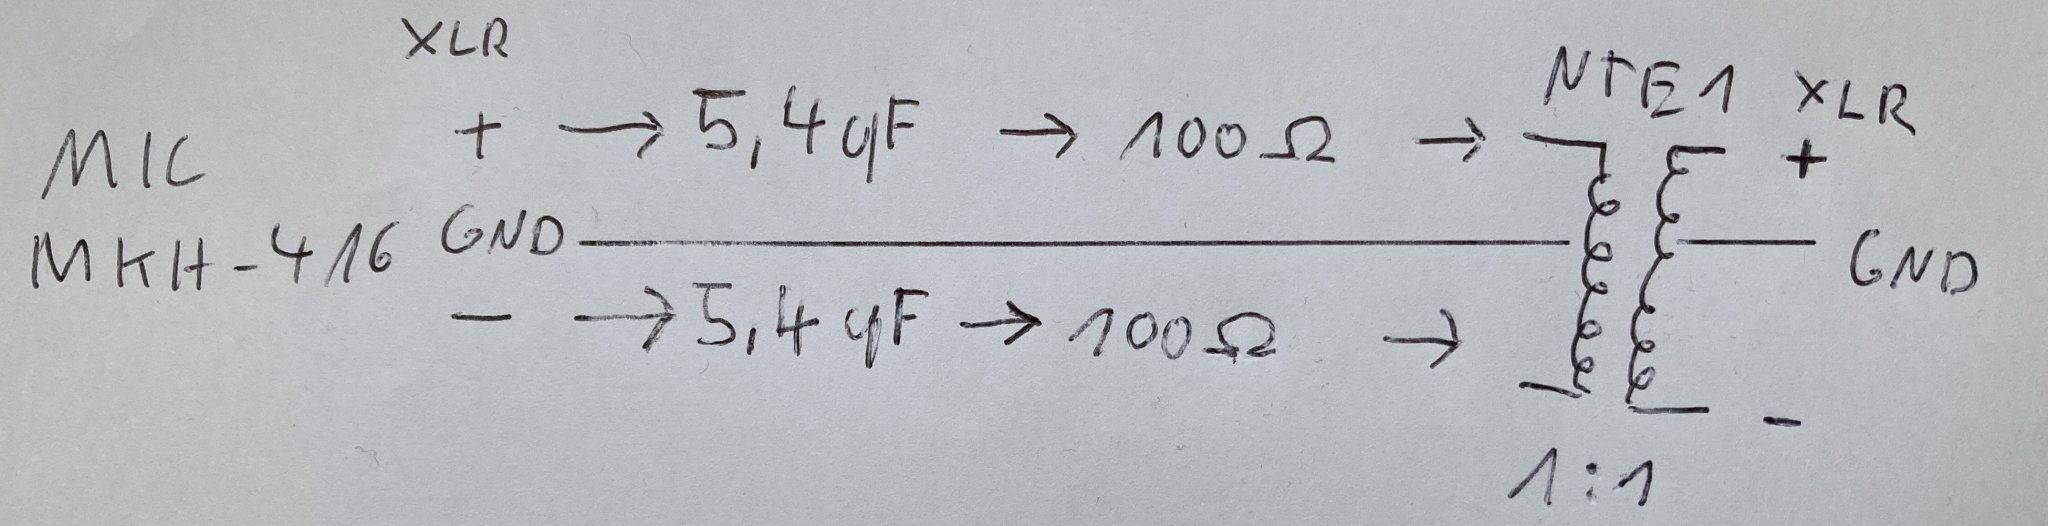 XLR
MIC + → 5,4 μF → 100 Ω → NTE1 XLR +
MKH-416 GND GND
- → 5,4 μF → 100 Ω → -
1:1